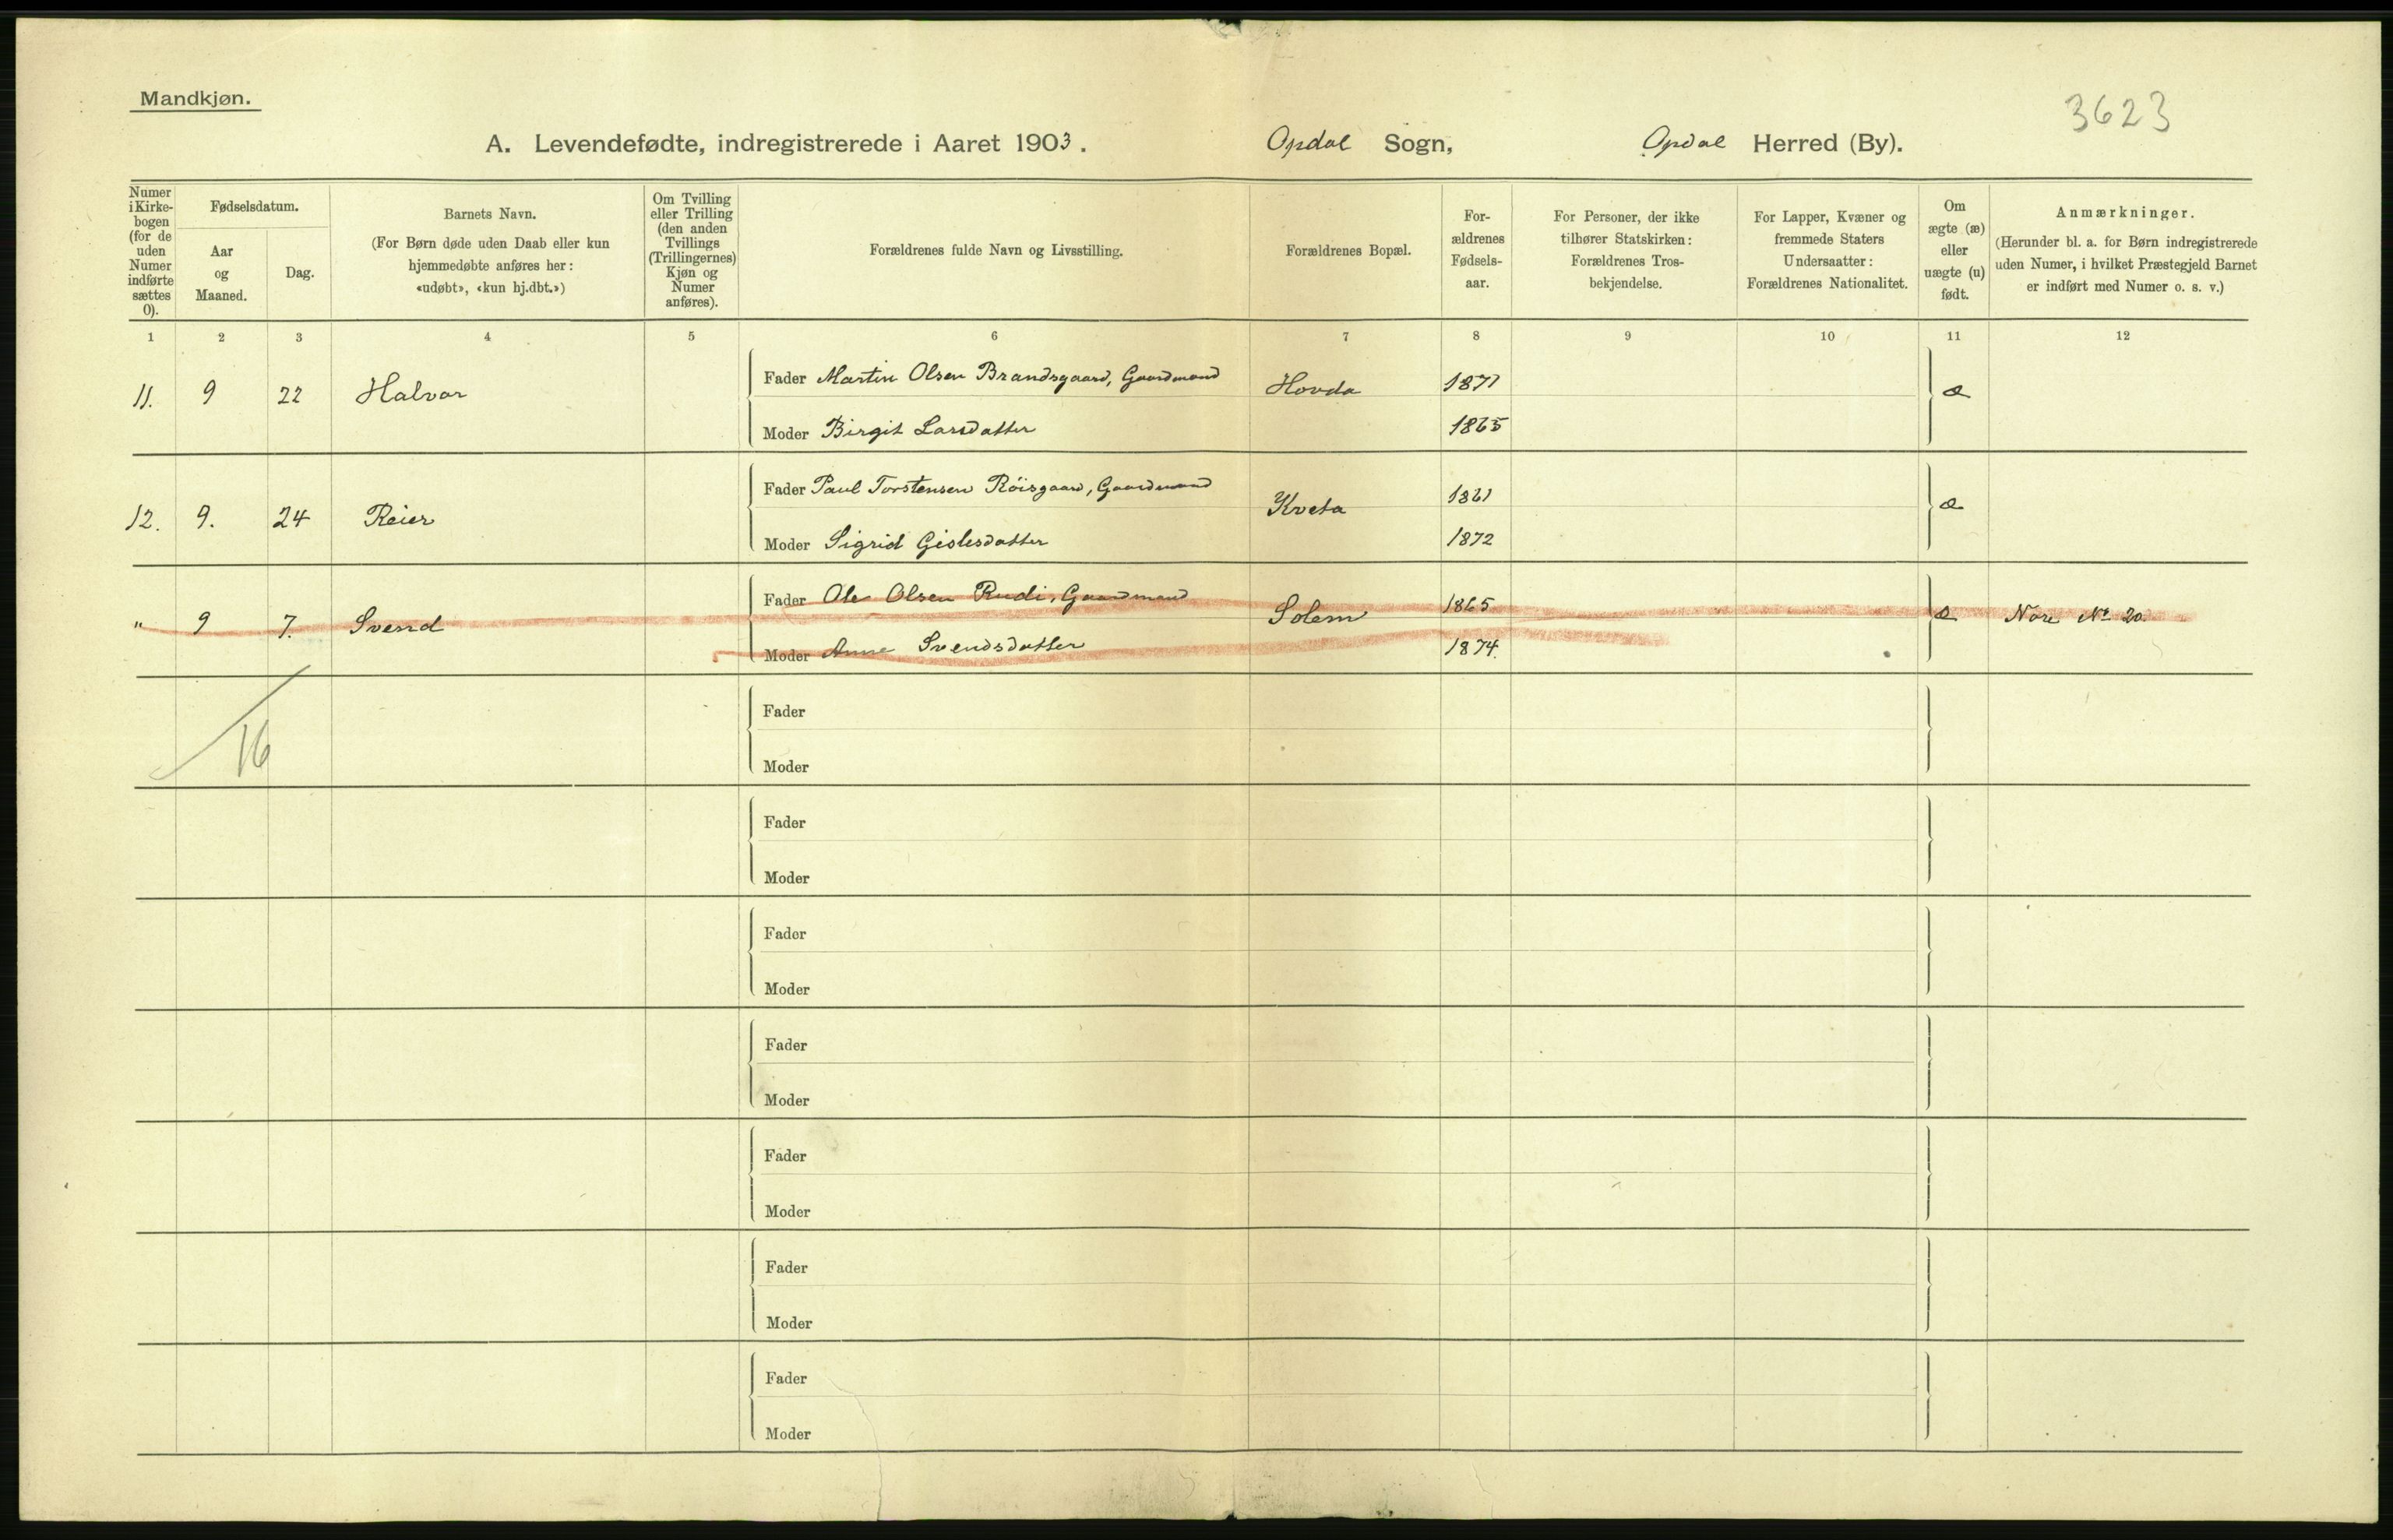 Mandkjøn.
3623
A. Levendefødte, indregistrerede i Aaret 1903. Opdal Sogn, Opdal Herred (By).
Numer i Kirkebogen (for de uden Numer indførte sættes 0).
Fødselsdatum.
Aar og Maaned.
Dag.
Barnets Navn.
(For Børn døde uden Daab eller kun
hjemmedøbte anføres her:
«udøbt», «kun hj.dbt.»)
Om Tvilling
eller Trilling
(den anden
Tvillings
(Trillingernes)
Kjøn og
Numer
anføres).
Forældrenes fulde Navn og Livsstilling.
Forældrenes Bopæl.
For-
ældrenes
Fødsels-
aar.
For Personer, der ikke
tilhører Statskirken:
Forældrenes Tros-
bekjendelse.
For Lapper, Kvæner og
fremmede Staters
Undersaatter:
Forældrenes Nationalitet.
Om
ægte (æ)
eller
uægte (u)
født.
Anmærkninger.
(Herunder bl. a. for Børn indregistrerede
uden Numer, i hvilket Præstegjeld Barnet
er indført med Numer o. s. v.)
1 2 3 4 5 6 7 8 9 10 11 12
11. 9 22 Halvor Fader Martin Olsen Brandsgaard, Gaardmand Hovda 1871 æ
Moder Birgit Larsdatter 1865
12. 9. 24 Reier Fader Paul Torstensen Röisgaard, Gaardmand Kveta 1861 æ
Moder Sigrid Gislesdatter 1872
" 9 7. Svend Fader Ole Olsen Rudi, Gaardmand Solem 1865 æ Nore No 20.
Moder Anne Svendsdatter 1874.
16
Fader
Moder
Fader
Moder
Fader
Moder
Fader
Moder
Fader
Moder
Fader
Moder
Fader
Moder